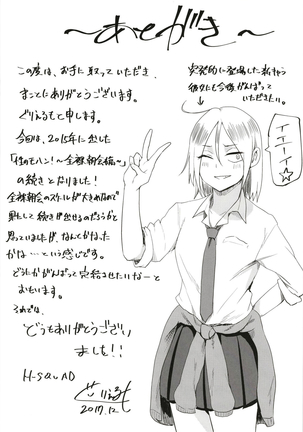 ～あとがき～
この度は、お手に取っていただき
まことにありがとうございます。
どりえるもと申します。
今回は、2015年に出した
「性のモハン!～全裸朝会編～」
の続きとなりました!
全裸朝会のスケールが大きめなので
果たして続きが出せるのだろうかと
思っていましたが、なんとかなった
かな…という感じです。
どうにかがんばって完結させたいなーと
おもいます。
それでは、
どうもありがとうござい
ました!!
H-SQUAD
2017.12
突発的に登場した
彼女にも今後がんばって
いただきたい。
イエーイ☆